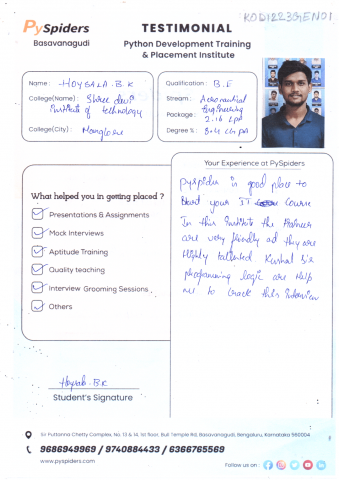 KOD1223GEN01
PySpiders
Basavanagudi
TESTIMONIAL
Python Development Training
& Placement Institute
Name : HOYSALA . B . K
College(Name) : Shree devi
institute of technology
College(City) : Manglore
Qualification : B . E
Stream : Aeronautical
Engineering
Package : 2.16 LPA
Degree % : 8.4 CGPA
What helped you in getting placed ?
Presentations & Assignments
Mock Interviews
Aptitude Training
Quality teaching
Interview Grooming Sessions
Others
Your Experience at PySpiders
pyspider is good place to
your IT course
In this institute the trainer
are very friendly ad they are
Highly tallented. Kushal sir
programming logic are Help
me to crack this interview
Hoysala . B.K
Student's Signature
Sir Puttanna Chetty Complex, No. 13 & 14, 1st floor, Bull Temple Rd, Basavanagudi, Bengaluru, Karnataka 560004
9686949969 / 9740884433 / 6366765569
www.pyspiders.com
Follow us on :